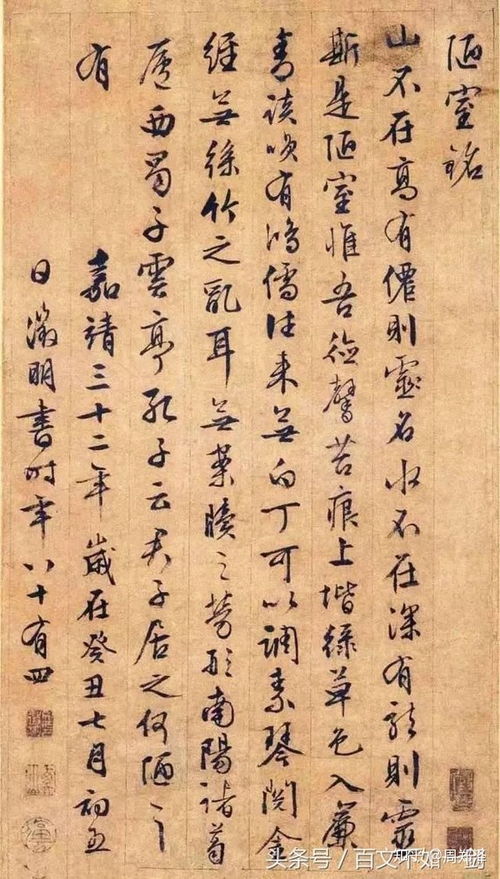 陋室銘
山不在高有僊則靈名水不在深有龍則靈
斯是陋室惟吾德馨苔痕上堦綠草色入簾
青談笑有鴻儒往來無白丁可以調素琴閱金
經無絲竹之亂耳無案牘之勞形南陽諸葛
廬西蜀子雲亭孔子云君子居之何陋之
有
嘉靖三十二年歲在癸丑七月初五
日徵明書時年八十有四
头条号 / 百文不如一
知乎 @周